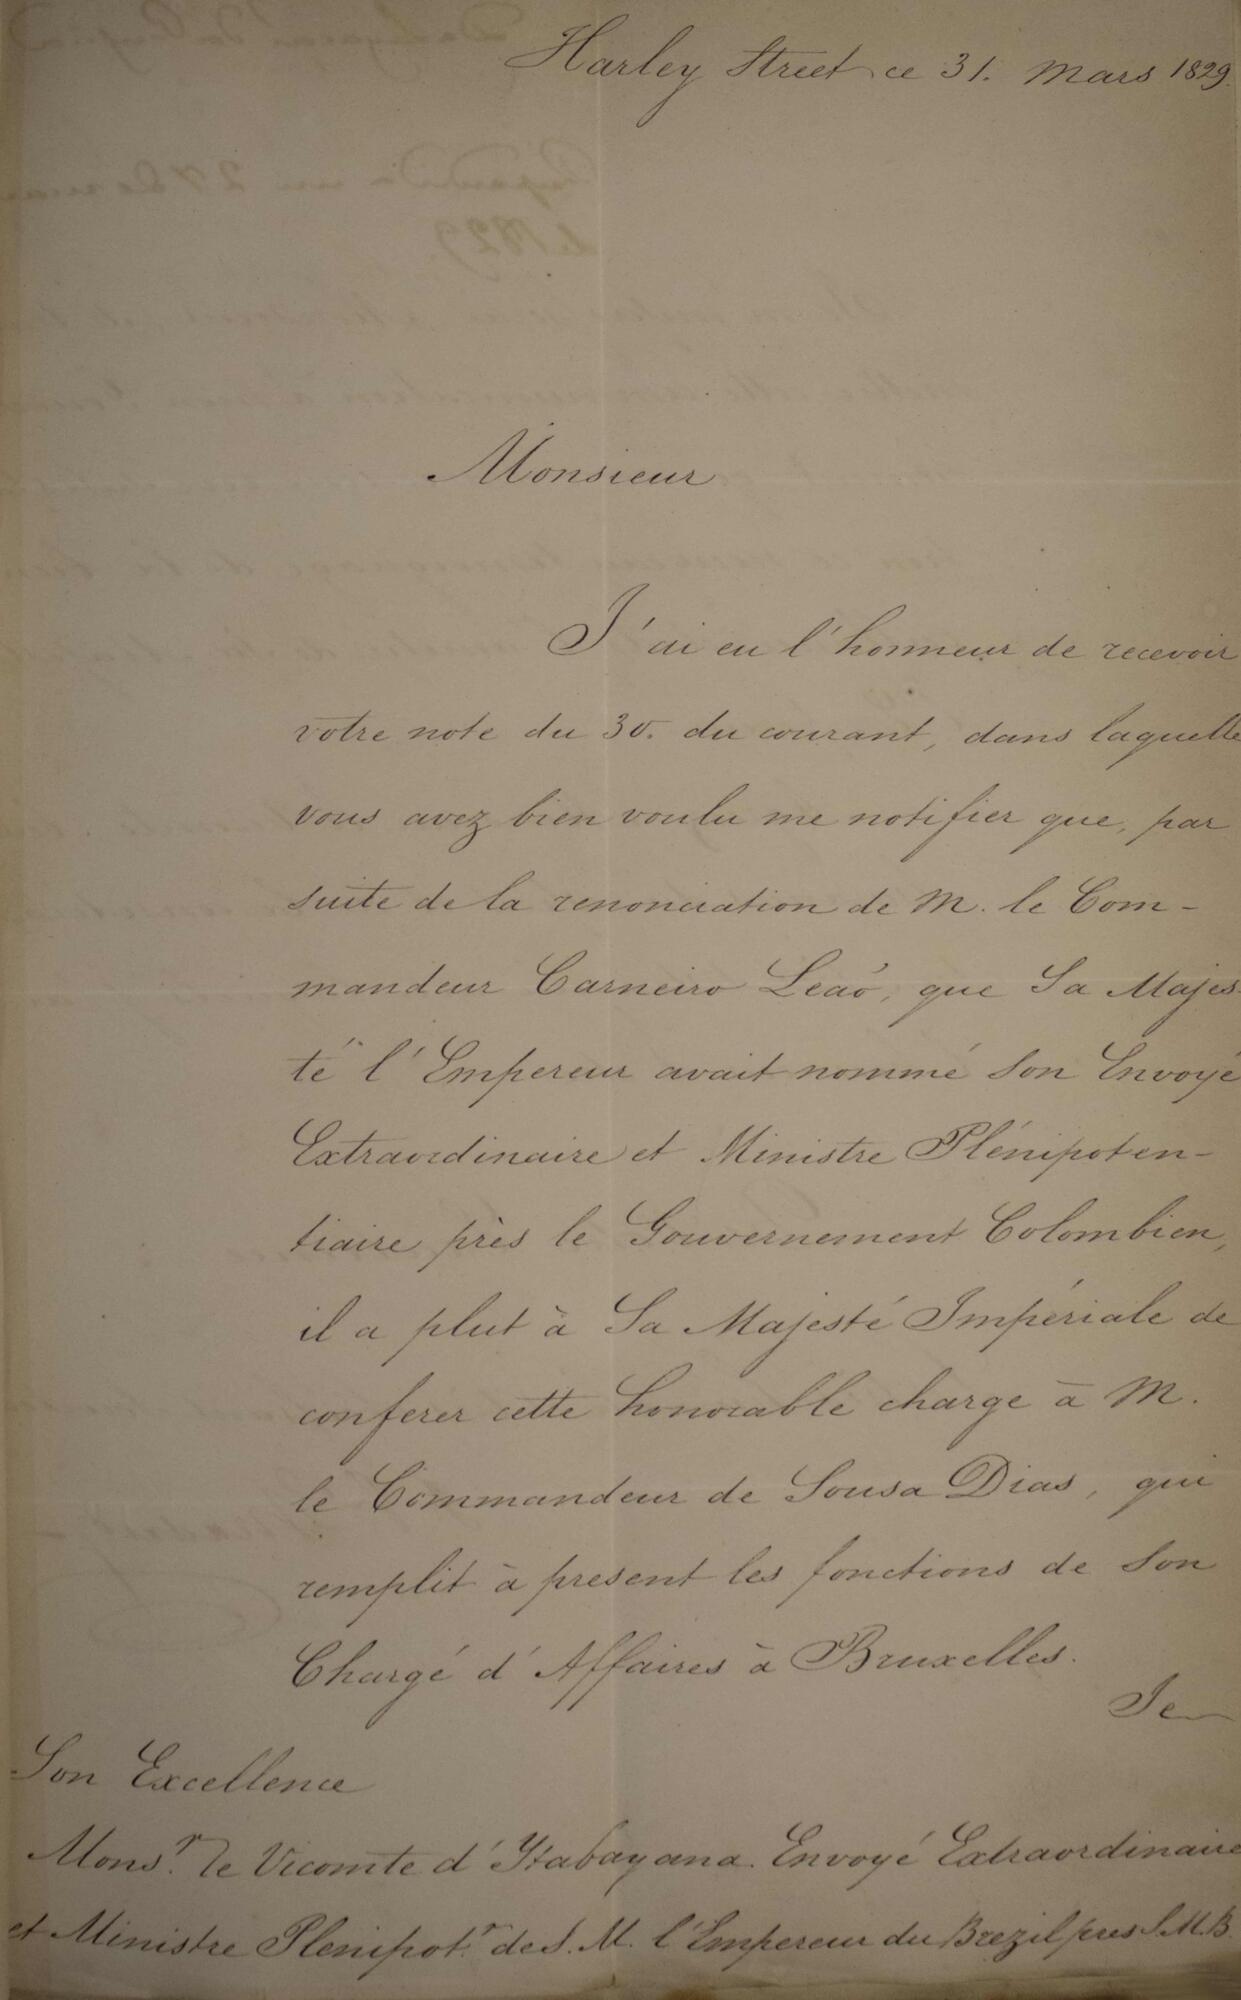 Harley Street ce 31. Mars 1829.
Monsieur
J'ai eu l'honneur de recevoir
votre note du 30. du courant, dans laquelle
vous avez bien voulu me notifier que, par
suite de la renonciation de M. le Com-
mandeur Carneiro Leaó, que Sa Majes-
té l'Empereur avait nommé Son Envoyé
Extraordinaire et Ministre Plénipoten-
tiaire près le Gouvernement Colombien,
il a plut à Sa Majesté Impériale de
conferer cette honorable charge à M.
le Commandeur de Sousa Dias, qui
remplit à present les fonctions de Son
Chargé d'Affaires à Bruxelles.
Je
Son Excellence
Mons.r le Vicomte d'Itabayana. Envoyé Extraordinaire
et Ministre Plenipot.r de S. M. l'Empereur du Brezil pres S.M.B.